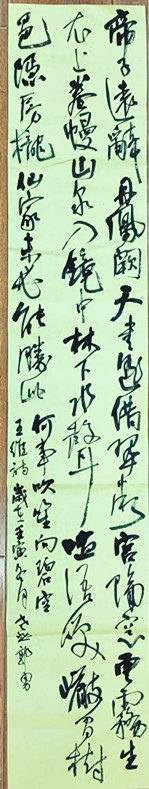 帝子遠辭丹鳳闕天書遙借翠微宮隔窓雲霧生
衣上卷幔山泉入鏡中林下水聲喧語笑巖間樹
色隱房櫳仙家未必能勝此
何事吹笙向碧空
王維詩歲在壬寅月郭勇